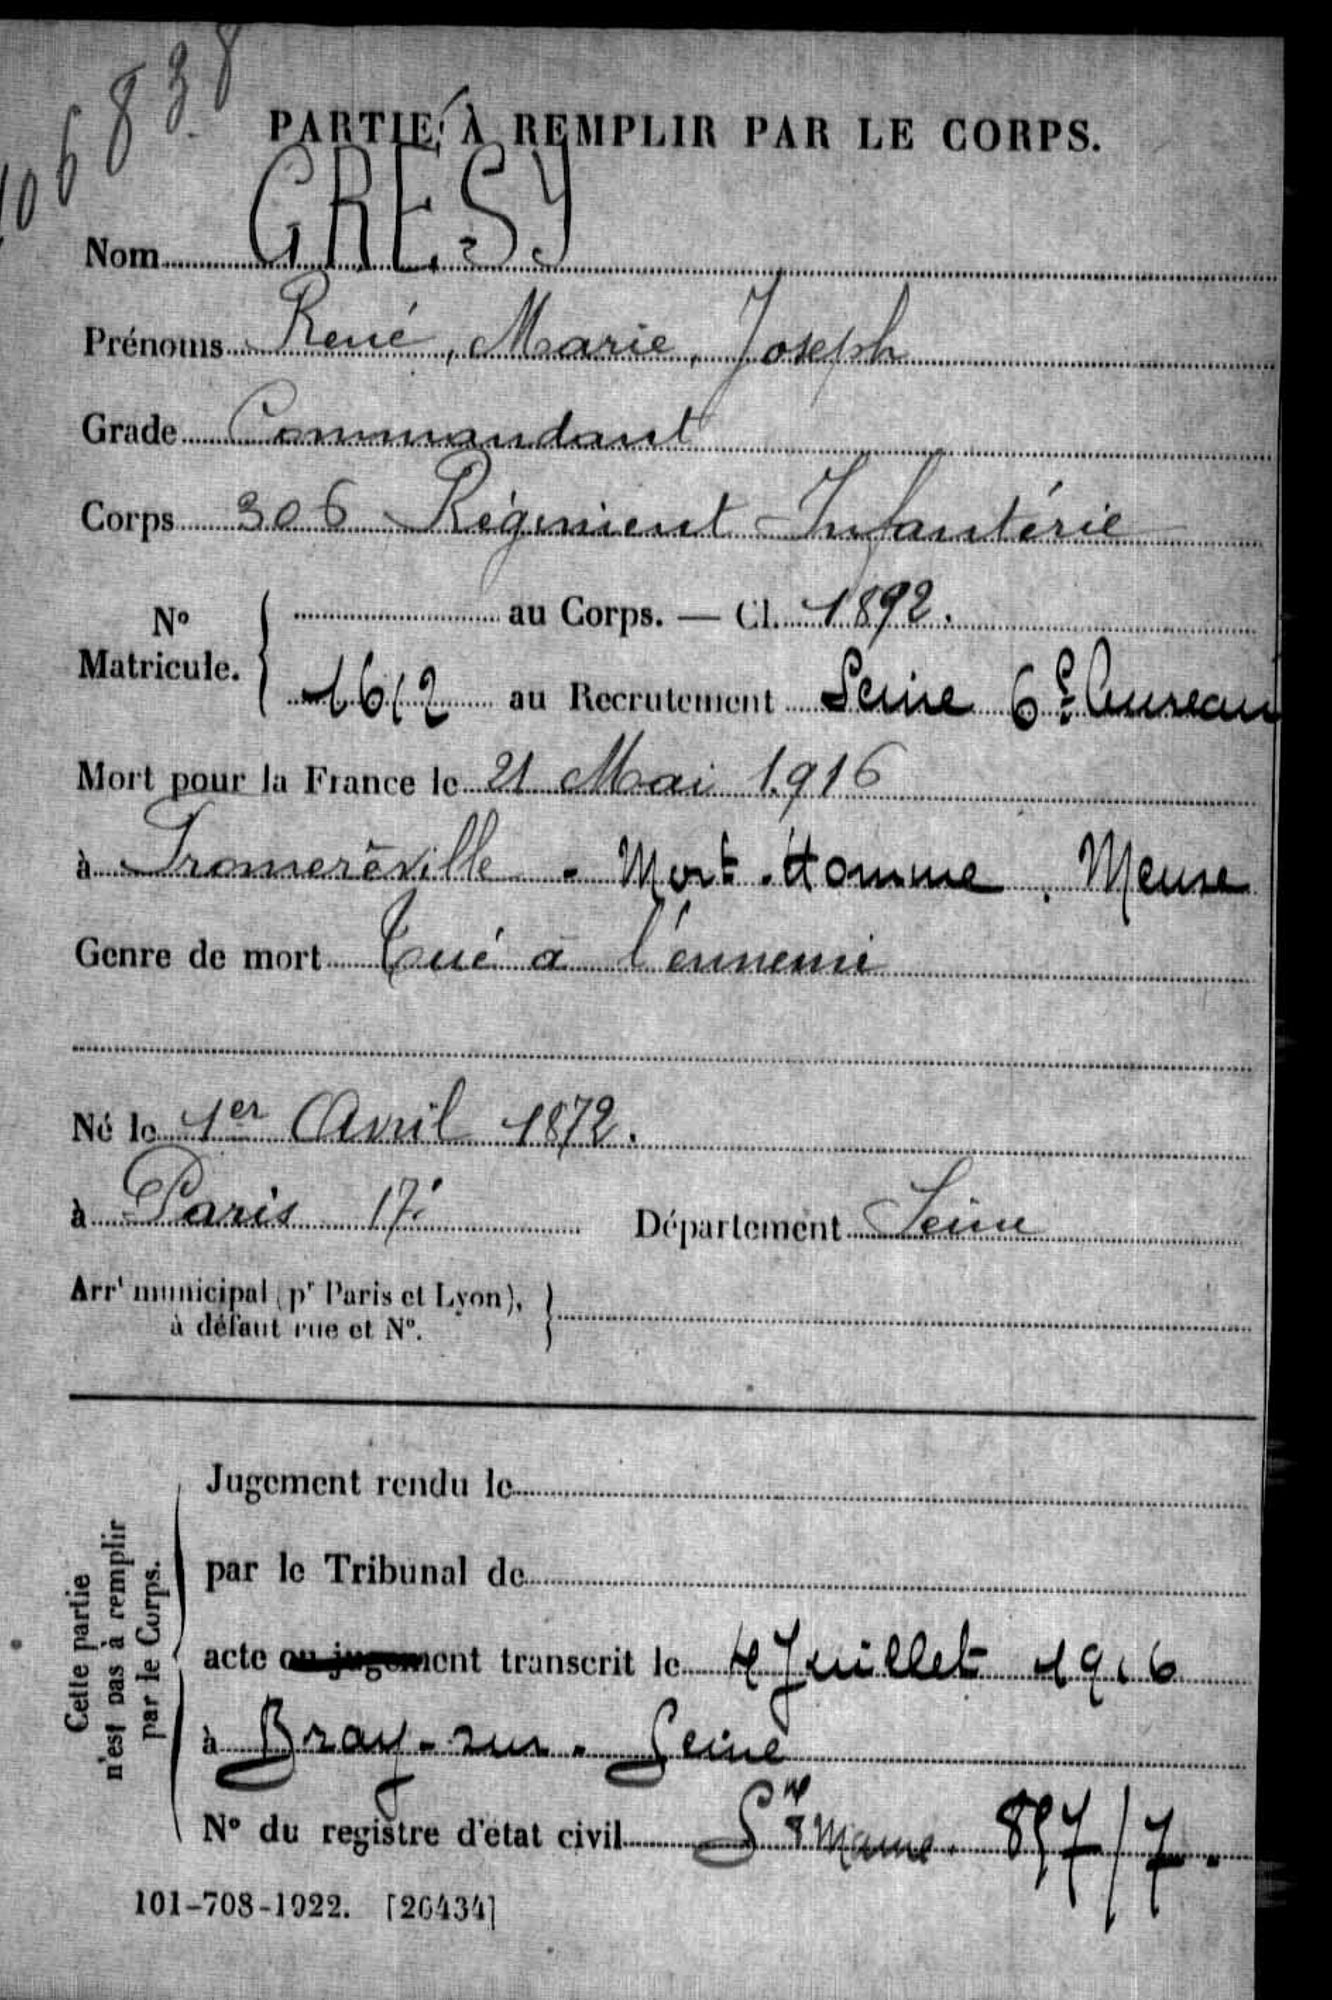 106838
PARTIE À REMPLIR PAR LE CORPS.
Nom GRÉSY
Prénoms René, Marie, Joseph
Grade Commandant
Corps 306 Régiment Infantérie
N° Matricule. au Corps. — Cl. 1892.
1612 au Recrutement Seine 6e bureau
Mort pour la France le 21 Mai 1916
à Fromeréville - Mort-Homme. Meuse
Genre de mort Tué à l'ennemi
Né le 1er Avril 1872.
à Paris 17e Département Seine
Arrt municipal (pr Paris et Lyon),
à défaut rue et N°.
Cette partie
n'est pas à remplir
par le Corps.
Jugement rendu le
par le Tribunal de
acte ou jugement transcrit le 4 Juillet 1916
à Bray-sur-Seine
N° du registre d'état civil Sne & Marne. 857/7.
101-708-1922. [26434]